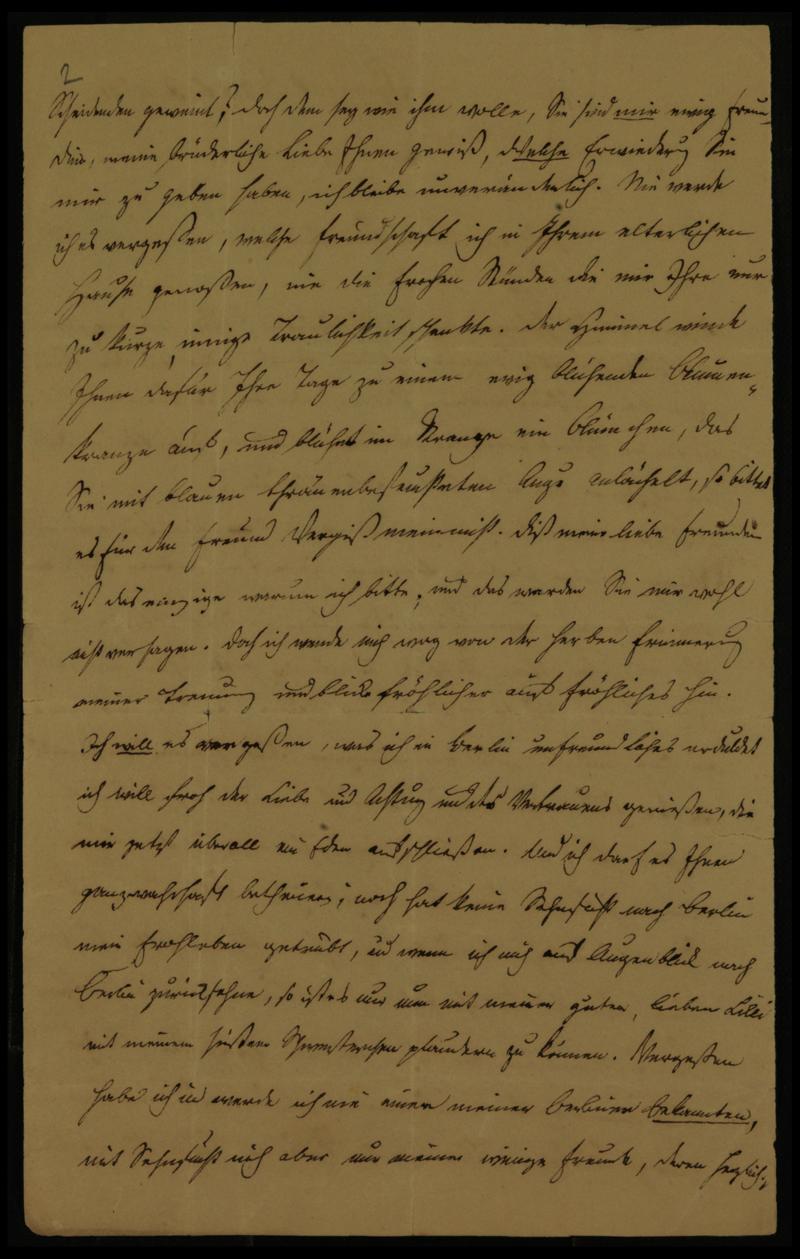 2
Scheidenden geweint? doch dem sey wie ihm wolle, Sie sind mir ewig Freun-
din, meine brüderliche Liebe Ihnen gewiß, welche Erwiederung Sie
mir zu geben haben, ich bleibe unveränderlich. Nie werde
ich es vergeßen, welche Freundschaft ich in Ihrem elterlichen
Hause genoßen, nie die frohen Stunden die mir Ihre nur
zu kurze, innige Traulichkeit schenkte. Der Himmel winde
Ihnen dafür Ihre Tage zu einem ewig blühenden Blumen-
kranze aus, und blühet im Kranze ein Blümchen, das
Sie mit blauen thränenbefeuchteten Auge anlächelt, so bittet
es für den Freund Vergißmeinnicht. Diß meine liebe Freundin
ist das einzige warum ich bitte, und das werden Sie mir wohl
nicht versagen. Doch ich wende mich weg von der herben Erinnerung
meiner Trennung und blicke fröhlicher auf fröhliches hin.
Ich will es vergeßen, was ich in Berlin unfreundliches erduldet
ich will froh der Liebe und Achtung und des Vertrauens genießen, die
mir jetzt überall ein Eden aufschließen. Und ich darf es Ihnen
ganz wahrhaft betheuern, noch hat keine Sehnsucht nach Berlin
mein Frohleben getrübt, und wenn ich mich auf Augenblick nach
Berlin zurücksehne, so ist es nur um mit meiner guten, lieben Lilli
mit meinem süßen Schwesterchen plaudern zu können. Vergeßen
habe ich und werde ich nie einen meiner Berliner Bekannten,
mit Sehnsucht mich aber nur meiner wenige Freunde, deren herzlich-